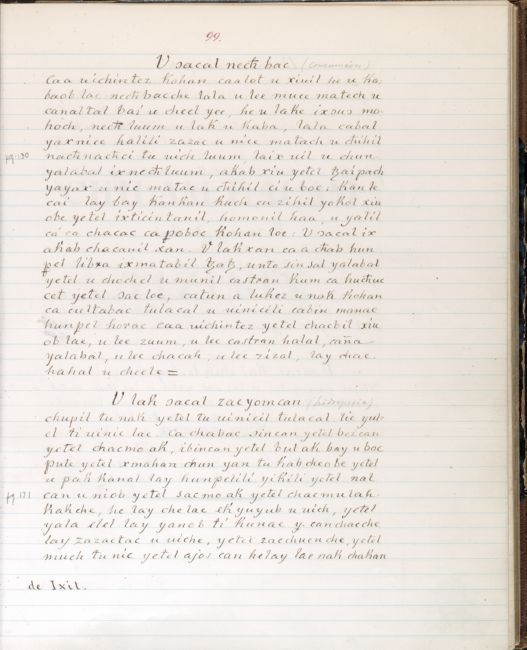 99.
U sacal nech bac (consuncion)
Caa uichintez kohan caalot u xiuil he u ka
baob lae nech bacche lala u lee muce matech u
canaltal u cheel yee, he u lake ixsus mo
hoch, nech luum u lak u kaba, lala cabal
yaxnice halili zazac u nice matach u chihil
pg. 130 nachnachci tu uich luum, laix uil u chun
yalabal ixnechluum, akab xiu yetel
yayax u nic matac u chihil ci u boc; kan le
cai lay bay kankan kuch ca zihil yokol xiu
obe yetel ixticintanil, homonil haa, u yalil
ca ca chacac ca poboc kohan loe: U sacal ix
akab chacauil xan. U lak xan ca a chab hun
ppel libra ixmatabil, unto sin sal yalabal
yetel u chochel u munil castran kum ca huchuc
cet yetel sac loe, catun a lukez u nak kohan
ca cultabac tulacal u uinicili caben manac
hunpel horae caa uichintez yetel chacbil xiu
ob lae, u lee zuum, u lee castran halal, caña
yalabal, u lee chacah, u lee zizal, lay chac
hahal u cheele =
U lak sacal zacyomcan (hidropesia)
chupil tu nak yetel tu uinicil tulacal lic yub
el ti uinic lae. Ca chabac sincan yetel bezcan
yetel chacmo ak, ibincan yetel bul ak bay u boc
pule yetel xmahan chun yan tu kab cheobe yetel
u pak kanal lay hunpelili yikili yetel nal
pg. 131 can u niob yetel sacmo ak yetel chacmulak.
Kakche, he lay che lae ek yuyub u uich, yetel
yala elel lay yanob ti kunac y. can chacche
lay zazactac u uiche, yetel zacchuenche, yetel
much tu nic yetel ajos can helay lae nak chakan
de Ixil.